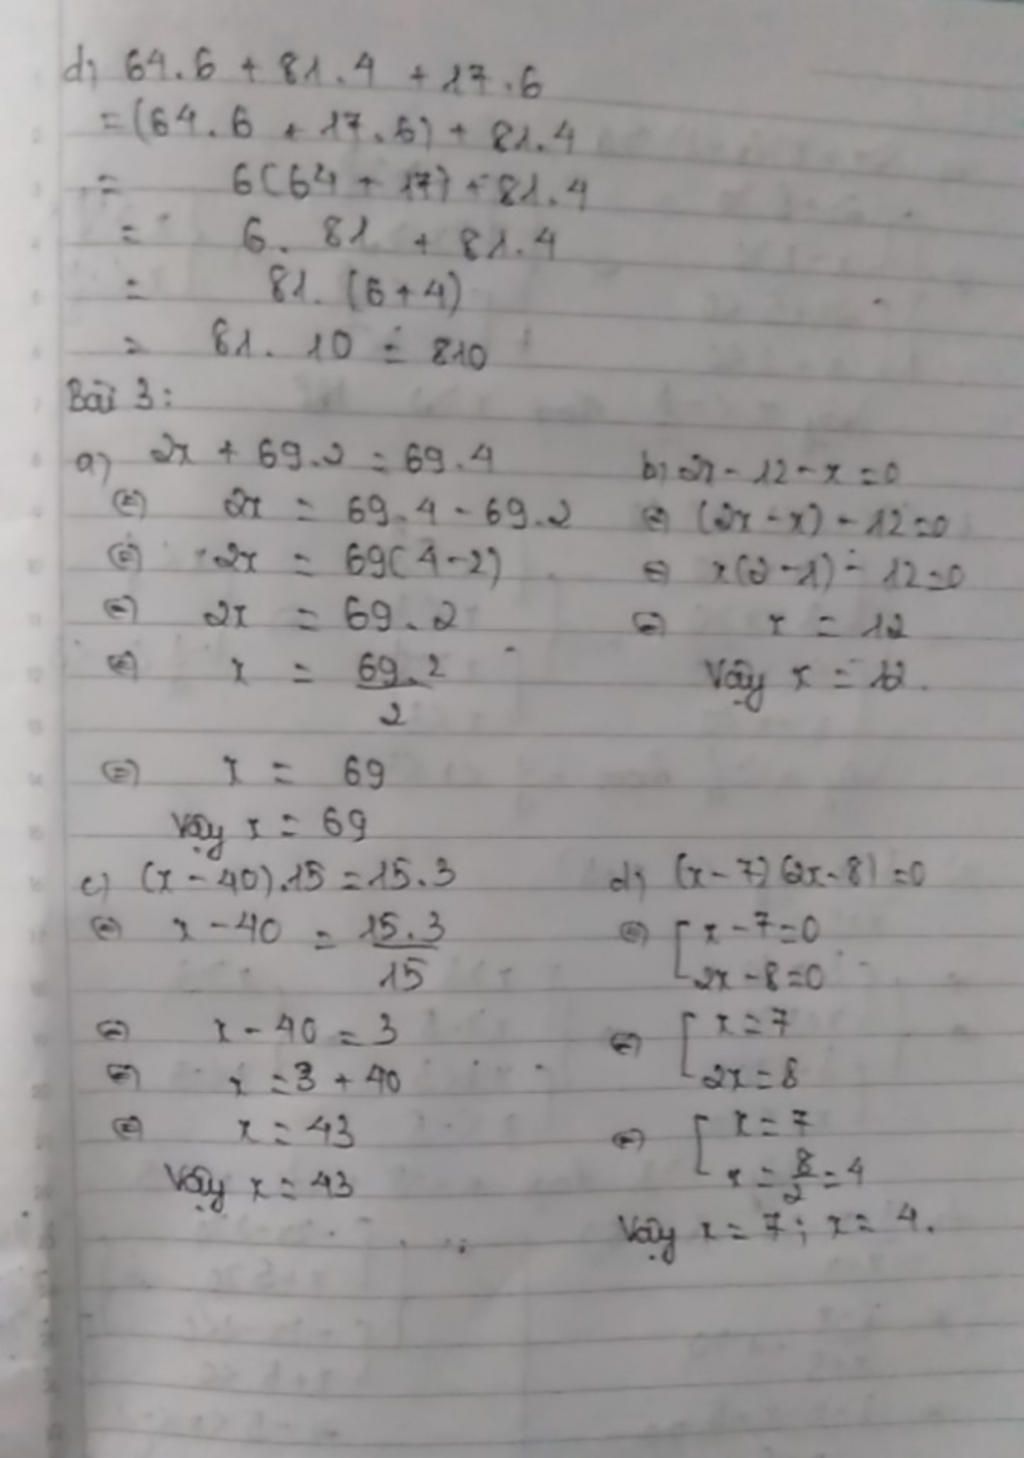 d, 64.6 + 81.4 + 17.6
= (64.6 + 17.6) + 81.4
= 6(64 + 17) + 81.4
= 6. 81 + 81.4
= 81. (6+4)
= 81. 10 = 810
Bài 3:
a, 2x + 69.2 = 69.4
⇔ 2x = 69.4 - 69.2
⇔ 2x = 69(4-2)
⇔ 2x = 69.2
⇔ x = 69.2/2
⇔ x = 69
Vậy x = 69
b, 2x - 12 - x = 0
⇔ (2x - x) - 12 = 0
⇔ x(2-1) - 12 = 0
⇔ x = 12
Vậy x = 12.
c, (x - 40).15 = 15.3
⇔ x - 40 = 15.3/15
⇔ x - 40 = 3
⇔ x = 3 + 40
⇔ x = 43
Vậy x = 43
d, (x - 7)(2x - 8) = 0
⇔ [ x - 7 = 0
2x - 8 = 0
⇔ [ x = 7
2x = 8
⇔ [ x = 7
x = 8/2 = 4
Vậy x = 7; x = 4.